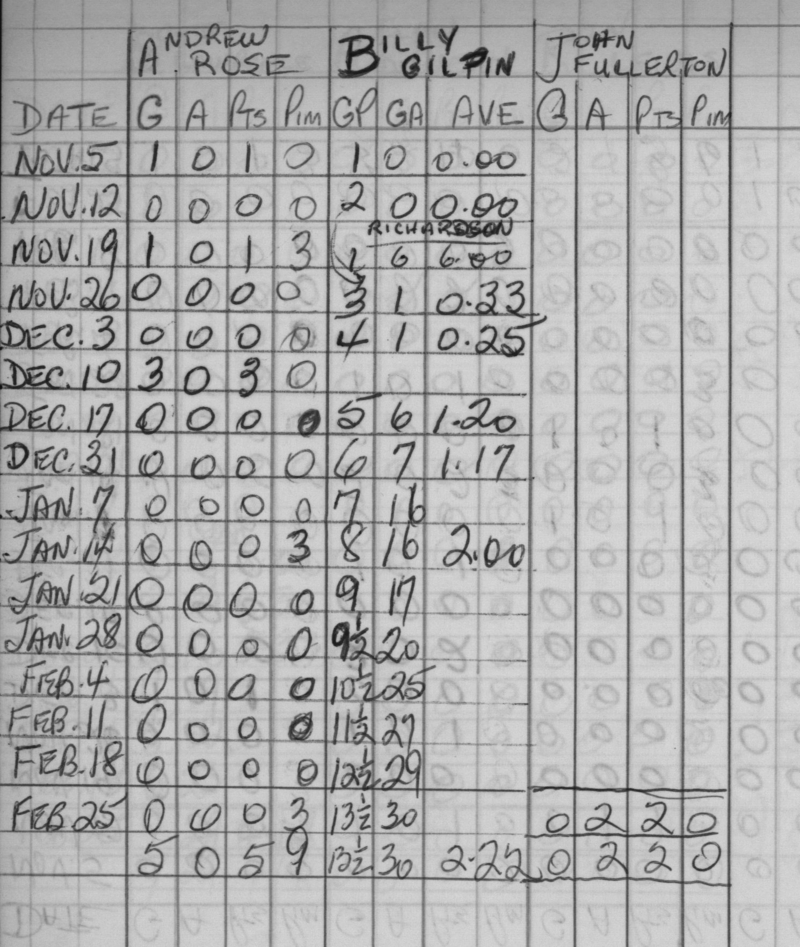 ANDREW ROSE BILLY GILPIN JOHN FULLERTON
DATE G A PTS PIM GP GA AVE G A PTS PIM
NOV. 5 1 0 1 0 1 0 0.00
NOV. 12 0 0 0 0 2 0 0.00
RICHARDSON
NOV. 19 1 0 1 3 1 6 6.00
NOV. 26 0 0 0 0 3 1 0.33
DEC. 3 0 0 0 0 4 1 0.25
DEC. 10 3 0 3 0
DEC. 17 0 0 0 0 5 6 1.20
DEC. 31 0 0 0 0 6 7 1.17
JAN. 7 0 0 0 0 7 16
JAN. 14 0 0 0 3 8 16 2.00
JAN. 21 0 0 0 0 9 17
JAN. 28 0 0 0 0 9½ 20
FEB. 4 0 0 0 0 10½ 25
FEB. 11 0 0 0 0 11½ 27
FEB. 18 0 0 0 0 12½ 29
FEB. 25 0 0 0 3 13½ 30 0 2 2 0
5 0 5 9 13½ 30 2.22 0 2 2 0